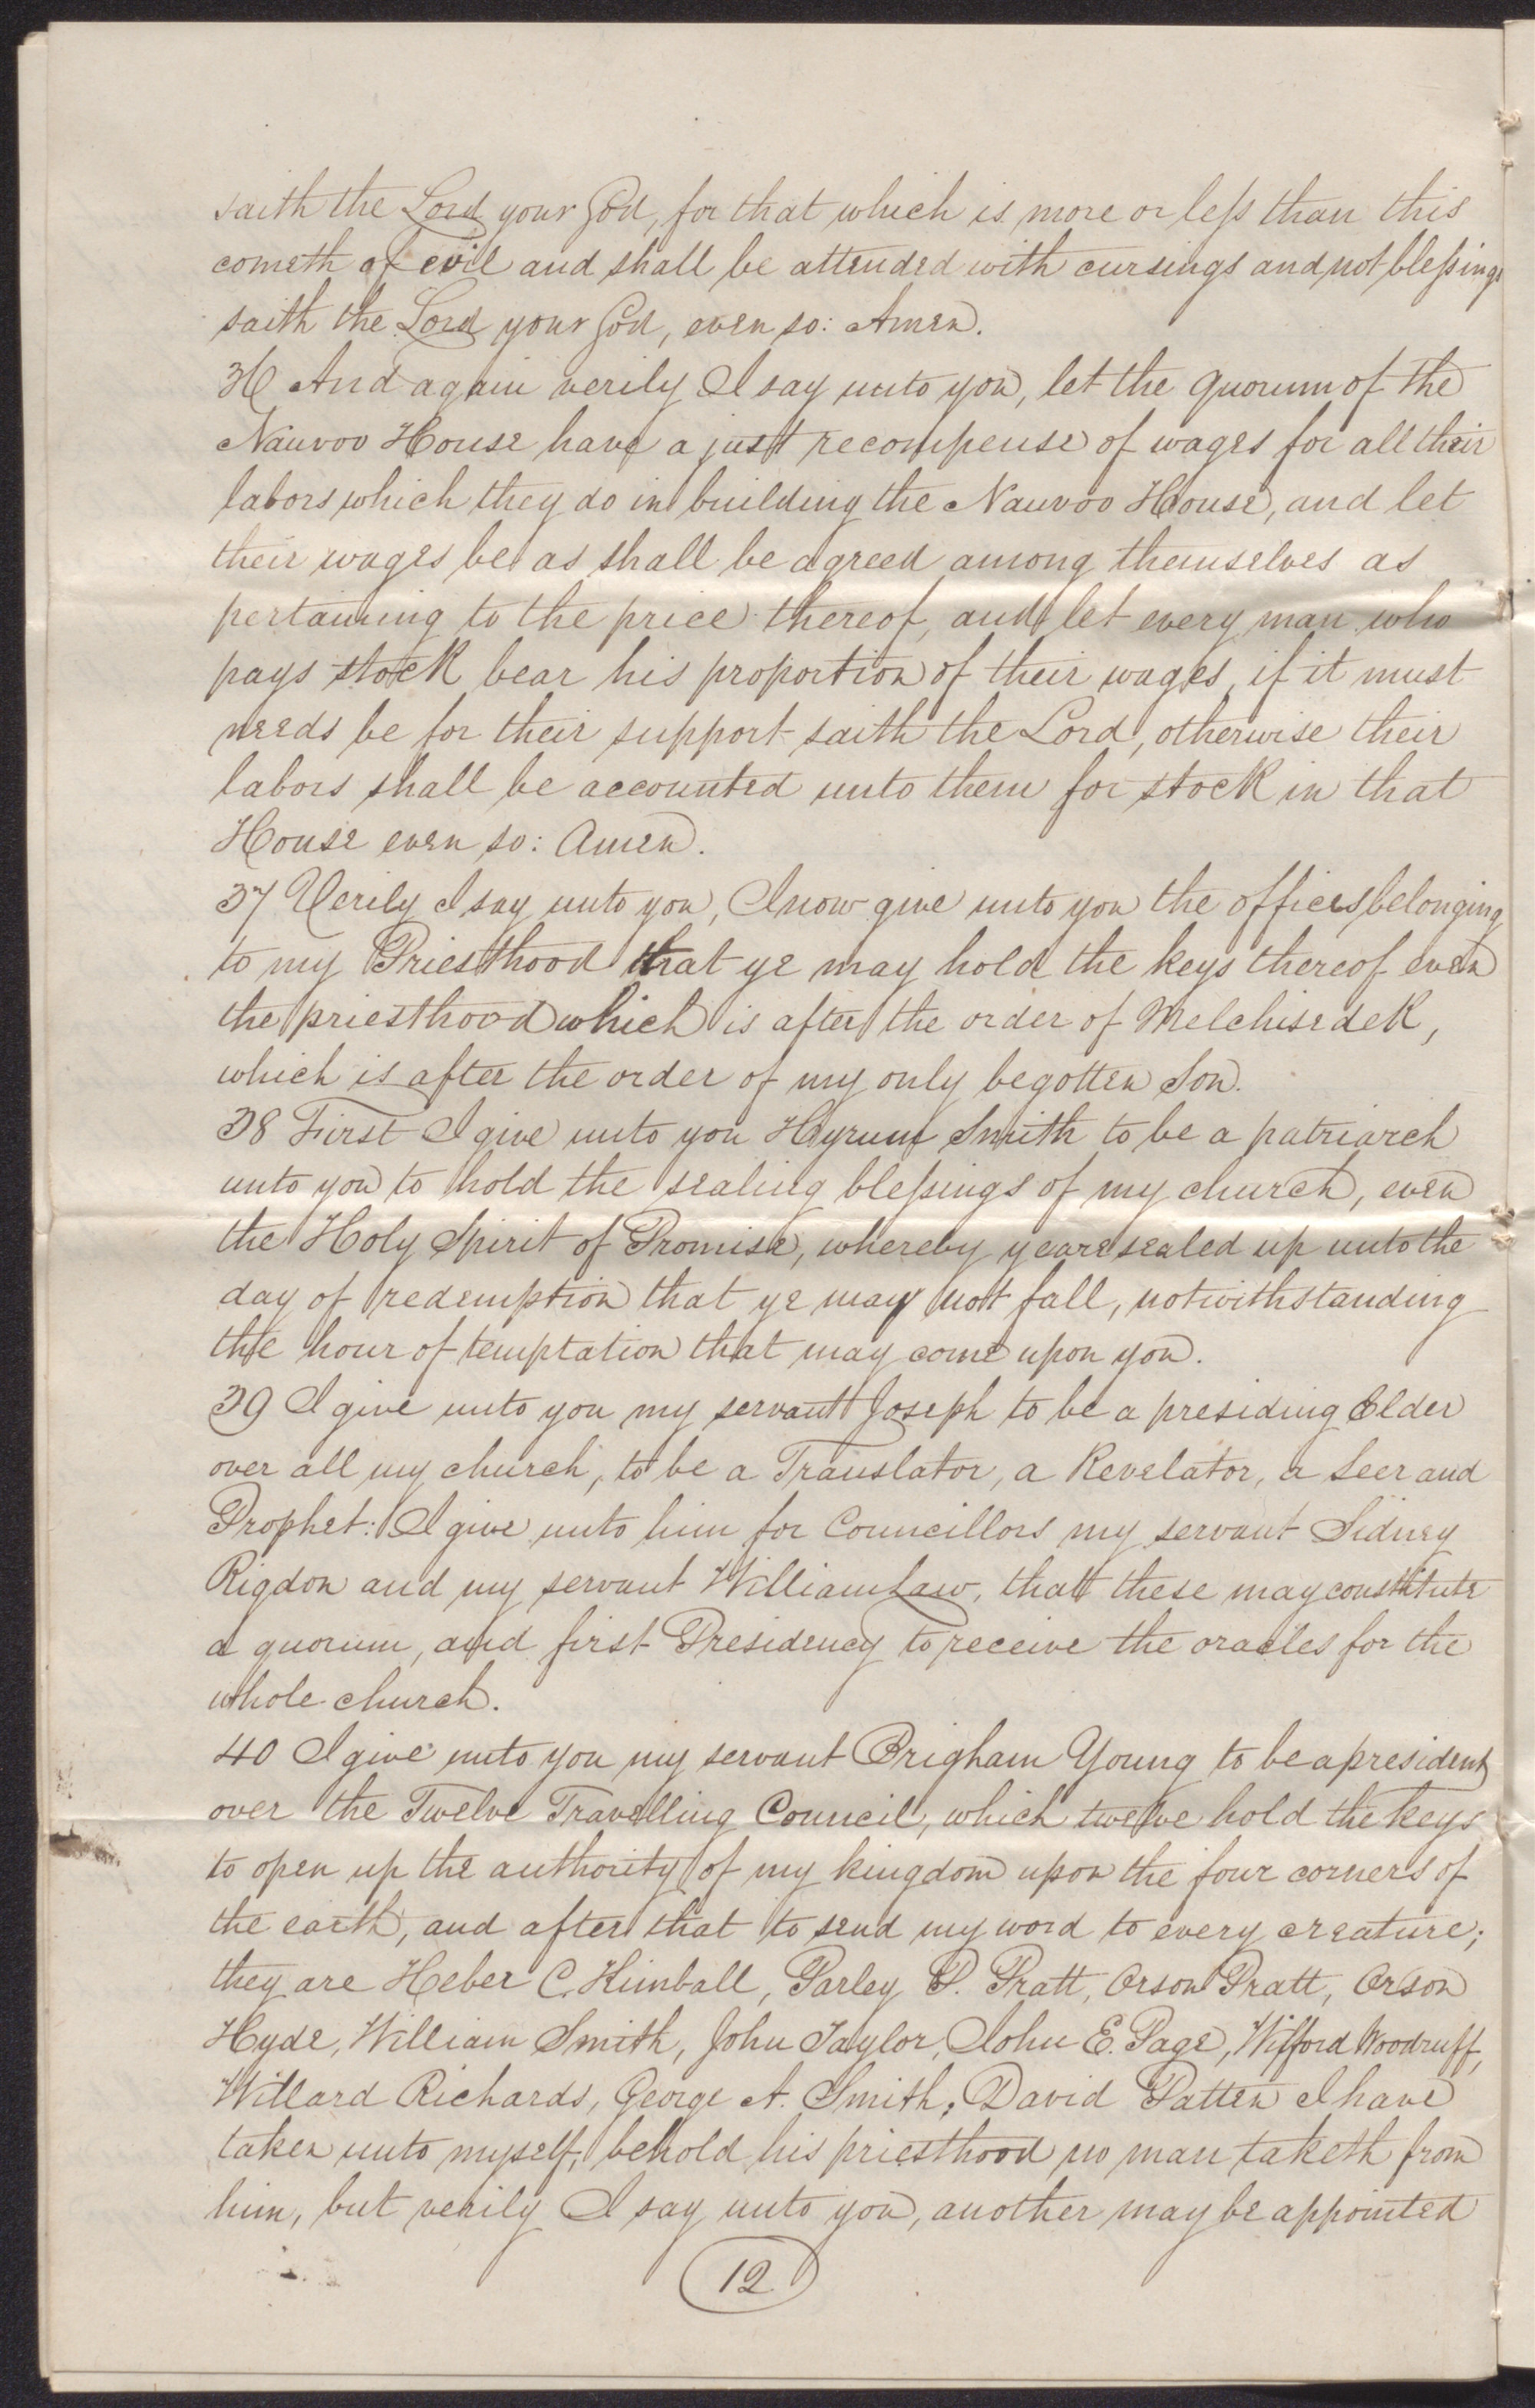 saith the Lord your God, for that which is more or less than this
cometh of evil and shall be attended with cursings and not blessings
saith the Lord your God, even so: Amen.
36 And again verily I say unto you, let the quorum of the
Nauvoo House have a just recompense of wages for all their
labors which they do in building the Nauvoo House, and let
their wages be as shall be agreed among themselves as
pertaining to the price thereof, and let every man who
pays stock bear his proportion of their wages, if it must
needs be for their support saith the Lord, otherwise their
labors shall be accounted unto them for stock in that
House even so: Amen.
37 Verily I say unto you, I now give unto you the offices belonging
to my Priesthood that ye may hold the keys thereof even
the priesthood which is after the order of Melchisedek,
which is after the order of my only begotten Son.
38 First I give unto you Hyrum Smith to be a patriarch
unto you to hold the sealing blessings of my church, even
the Holy Spirit of Promise, whereby ye are sealed up unto the
day of redemption that ye may not fall, notwithstanding
the hour of temptation that may come upon you.
39 I give unto you my servant Joseph to be a presiding Elder
over all my church, to be a Translator, a Revelator, a Seer and
Prophet: I give unto him for Councillors my servant Sidney
Rigdon and my servant William Law, that these may constitute
a quorum, and first Presidency to receive the oracles for the
whole church.
40 I give unto you my servant Brigham Young to be a president
over the Twelve Travelling Council, which twelve hold the keys
to open up the authority of my kingdom upon the four corners of
the earth, and after that to send my word to every creature;
they are Heber C. Kimball, Parley P. Pratt, Orson Pratt, Orson
Hyde, William Smith, John Taylor, John E. Page, Wifford Woodruff,
Willard Richards, George A. Smith; David Patten I have
taken unto myself, behold his priesthood no man taketh from
him, but verily I say unto you, another may be appointed
12